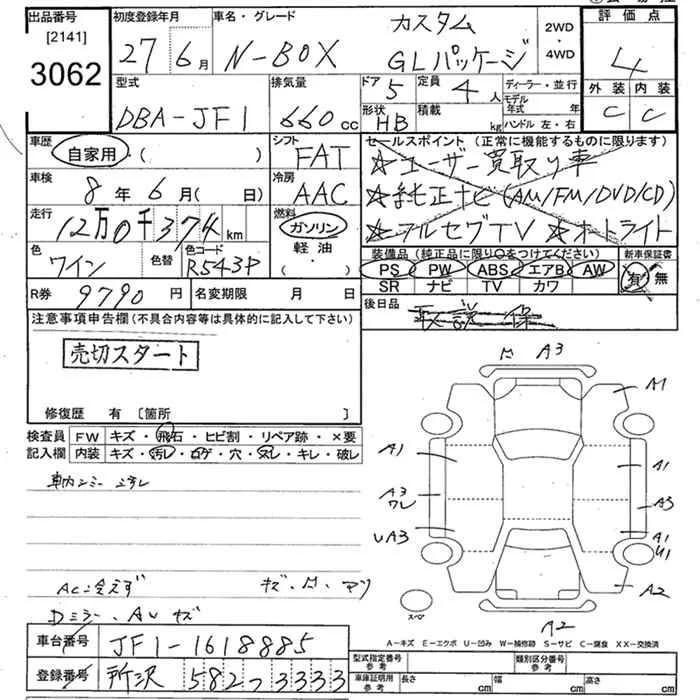 出品番号 初度登録年月 車名・グレード カスタム 2WD・4WD 評価点
[2141]
3062 27年6月 N-BOX GLパッケージ 4
型式 排気量 ドア 5 定員 4人 ディーラー・並行 外装 内装
モデル年式 年
DBA-JF1 660cc 形状 HB 積載 kg ハンドル 左・右 C C
車歴 シフト セールスポイント (正常に機能するものに限ります)
自家用・( ) FAT ★ユーザー買取り車
車検 冷房 ★純正ナビ(AM/FM/DVD/CD)
8年6月( 日) AAC
走行 燃料 ★フルセグTV ★オートライト
12万0千374km ガソリン
色 色替 色コード 軽油・( ) 装備品 (純正品に限り○をつけてください) 新車保証書
ワイン R543P PS PW ABS エアB AW 有・無
SR ナビ TV カワ
R券 9790円 名変期限 月 日 後日品
取説 保
注意事項申告欄(不具合内容等は具体的に記入して下さい)
売切スタート
修復歴 有 [箇所 ]
検査員 FW キズ・飛石・ヒビ割・リペア跡・×要
記入欄 内装 キズ・汚レ・コゲ・穴・スレ・キレ・破レ
A3
A1
A1 A1
A3 A3
ワレ
UA3 A1
U1
A2
スペア
A2
AC冷えず
Dミラー、AVキズ
A-キズ E-エクボ U-凹み W-補修跡 S-サビ C-腐食 XX-交換済
車台番号 JF1-1618885 型式指定番号 参考 類別区分番号 参考
登録番号 所沢 582つ3333 車庫証明用 参考 長さ cm 幅 cm 高さ cm